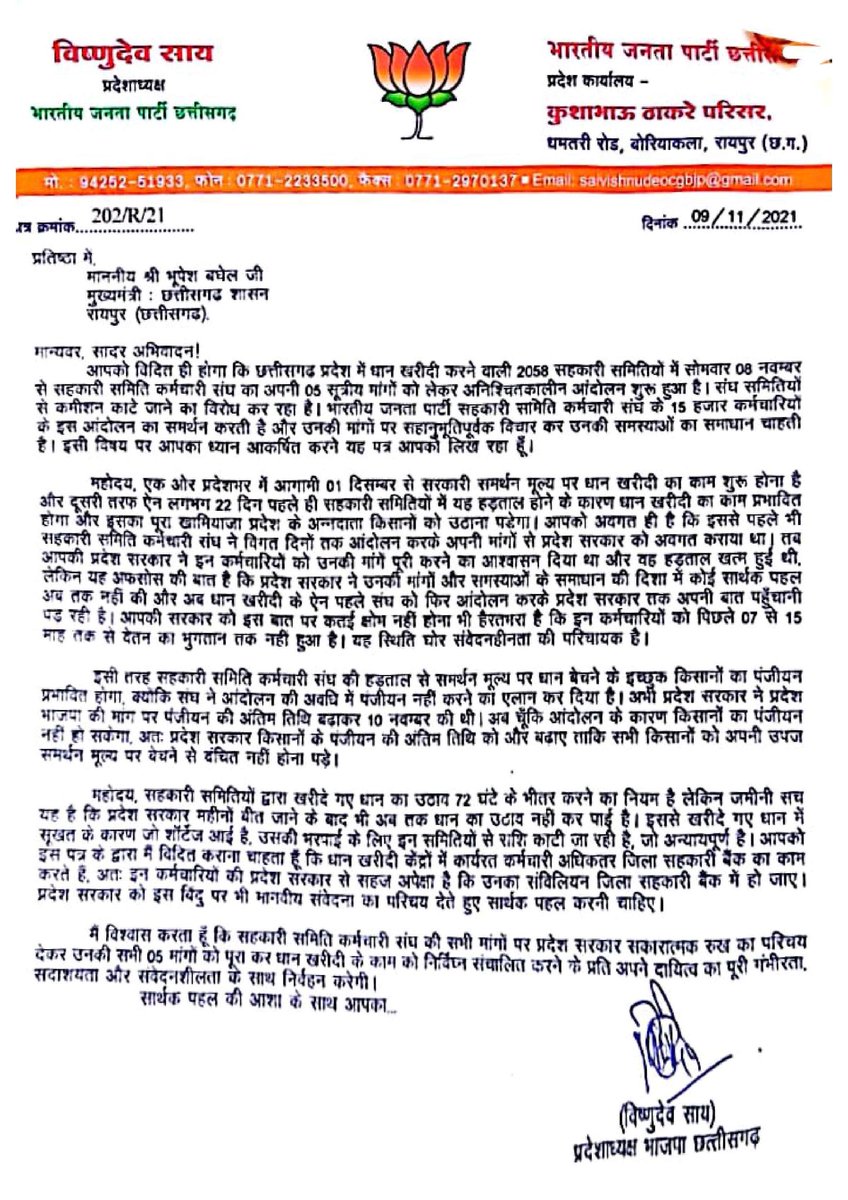 विष्णुदेव साय
प्रदेशाध्यक्ष
भारतीय जनता पार्टी छत्तीसगढ़
भारतीय जनता पार्टी
प्रदेश कार्यालय –
कुशाभाऊ ठाकरे परिसर,
धमतरी रोड, बोरियाकला, रायपुर (छ.ग.)
मो. : 94252-51933, फोन : 0771-2233500, फैक्स : 0771-2970137 ■ Email: saivishnudeocgbjp@gmail.com
पत्र क्रमांक 202/R/21
दिनांक 09/11/2021
प्रतिष्ठा में,
माननीय श्री भूपेश बघेल जी
मुख्यमंत्री : छत्तीसगढ शासन
रायपुर (छत्तीसगढ).
मान्यवर, सादर अभिवादन!
आपको विदित ही होगा कि छत्तीसगढ प्रदेश में धान खरीदी करने वाली 2058 सहकारी समितियों में सोमवार 08 नवम्बर
से सहकारी समिति कर्मचारी संघ का अपनी 05 सूत्रीय मांगों को लेकर अनिश्चितकालीन आंदोलन शुरू हुआ है। संघ समितियों
से कमीशन काटे जाने का विरोध कर रहा है। भारतीय जनता पार्टी सहकारी समिति कर्मचारी संघ के 15 हजार कर्मचारियों
के इस आंदोलन का समर्थन करती है और उनकी मांगों पर सहानुभूतिपूर्वक विचार कर उनकी समस्याओं का समाधान चाहती
है। इसी विषय पर आपका ध्यान आकर्षित करने यह पत्र आपको लिख रहा हूँ।
महोदय, एक ओर प्रदेशभर में आगामी 01 दिसम्बर से सरकारी समर्थन मूल्य पर धान खरीदी का काम शुरू होना है
और दूसरी तरफ ऐन लगभग 22 दिन पहले ही सहकारी समितियों में यह हड़ताल होने के कारण धान खरीदी का काम प्रभावित
होगा और इसका पूरा खामियाजा प्रदेश के अन्नदाता किसानों को उठाना पडेगा। आपको अवगत ही है कि इससे पहले भी
सहकारी समिति कर्मचारी संघ ने विगत दिनों तक आंदोलन करके अपनी मांगों से प्रदेश सरकार को अवगत कराया था। तब
आपकी प्रदेश सरकार ने इन कर्मचारियों को उनकी मांगें पूरी करने का आश्वासन दिया था और वह हड़ताल खत्म हुई थी,
लेकिन यह अफसोस की बात है कि प्रदेश सरकार ने उनकी मांगों और समस्याओं के समाधान की दिशा में कोई सार्थक पहल
अब तक नहीं की और अब धान खरीदी के ऐन पहले संघ को फिर आंदोलन करके प्रदेश सरकार तक अपनी बात पहुँचानी
पड रही है। आपकी सरकार को इस बात पर कतई क्षोभ नहीं होना भी हैरतभरा है कि इन कर्मचारियों को पिछले 07 से 15
माह तक से वेतन का भुगतान तक नहीं हुआ है। यह स्थिति घोर संवेदनहीनता की परिचायक है।
इसी तरह सहकारी समिति कर्मचारी संघ की हड़ताल से समर्थन मूल्य पर धान बेचने के इच्छुक किसानों का पंजीयन
प्रभावित होगा, क्योंकि संघ ने आंदोलन की अवधि में पंजीयन नहीं करने का एलान कर दिया है। अभी प्रदेश सरकार ने प्रदेश
भाजपा की मांग पर पंजीयन की अंतिम तिथि बढाकर 10 नवम्बर की थी। अब चूँकि आंदोलन के कारण किसानों का पंजीयन
नहीं हो सकेगा, अतः प्रदेश सरकार किसानों के पंजीयन की अंतिम तिथि को और बढाए ताकि सभी किसानों को अपनी उपज
समर्थन मूल्य पर बेचने से वंचित नहीं होना पड़े।
महोदय, सहकारी समितियों द्वारा खरीदे गए धान का उठाव 72 घंटे के भीतर करने का नियम है लेकिन जमीनी सच
यह है कि प्रदेश सरकार महीनों बीत जाने के बाद भी अब तक धान का उठाव नहीं कर पाई है। इससे खरीदे गए धान में
सूखत के कारण जो शॉर्टेज आई है, उसकी भरपाई के लिए इन समितियों से राशि काटी जा रही है, जो अन्यायपूर्ण है। आपको
इस पत्र के द्वारा मैं विदित कराना चाहता हूँ कि धान खरीदी केंद्रों में कार्यरत कर्मचारी अधिकतर जिला सहकारी बैंक का काम
करते हैं, अतः इन कर्मचारियों की प्रदेश सरकार से सहज अपेक्षा है कि उनका संविलियन जिला सहकारी बैंक में हो जाए।
प्रदेश सरकार को इस बिंदु पर भी मानवीय संवेदना का परिचय देते हुए सार्थक पहल करनी चाहिए।
मैं विश्वास करता हूँ कि सहकारी समिति कर्मचारी संघ की सभी मांगों पर प्रदेश सरकार सकारात्मक रुख का परिचय
देकर उनकी सभी 05 मांगों को पूरा कर धान खरीदी के काम को निर्विघ्न संचालित करने के प्रति अपने दायित्व का पूरी गंभीरता,
सदाशयता और संवेदनशीलता के साथ निर्वहन करेगी।
सार्थक पहल की आशा के साथ आपका...
(विष्णुदेव साय)
प्रदेशाध्यक्ष भाजपा छत्तीसगढ़